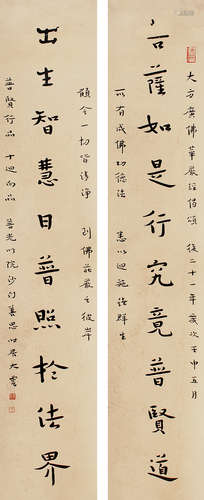 大方廣佛華嚴經偈頌 後二十一年歲次壬申五月
菩薩如是行究竟普賢道
所有成佛功德法 悉以迴施群生
願令一切皆清淨 到佛莊嚴之彼岸
出生智慧日普照於法界
普賢行品 十迴向品 光明院沙門善思